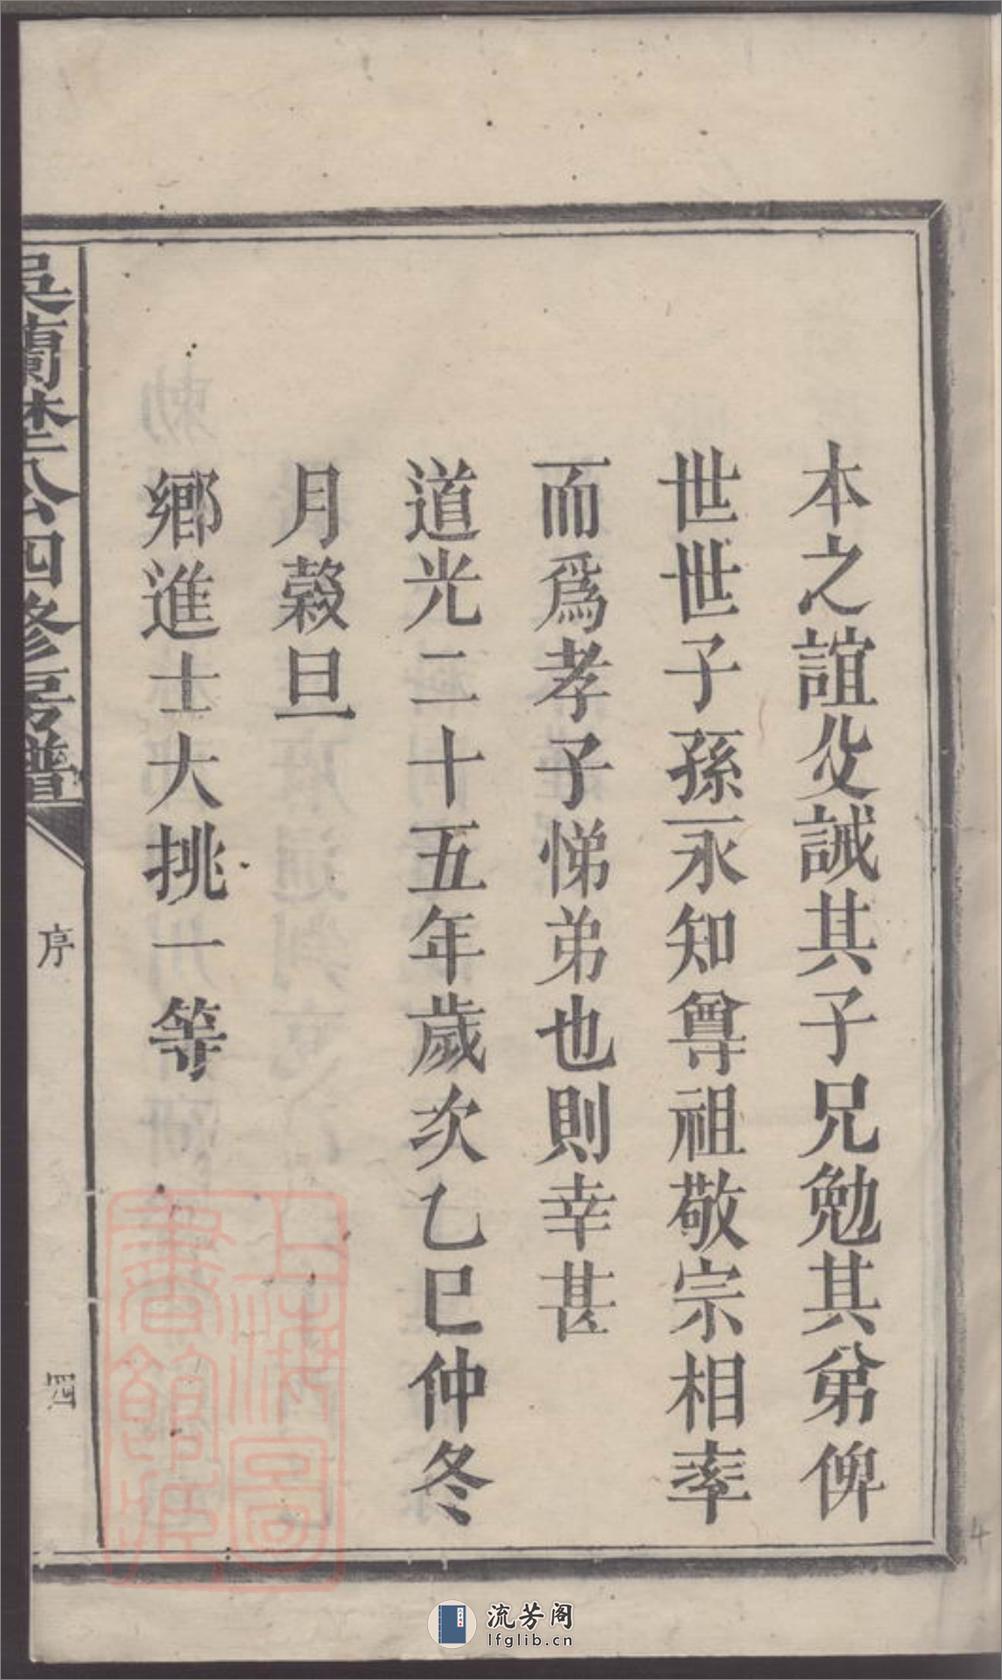 本之誼父誡其子兄勉其弟俾
世世子孫永知尊祖敬宗相率
而爲孝子悌弟也則幸甚
道光二十五年歲次乙巳仲冬
月穀旦
鄉進士大挑一等
吳蘭埜公四修房譜
序
四
上海圖書館藏
流芳阁
lfglib.cn
4